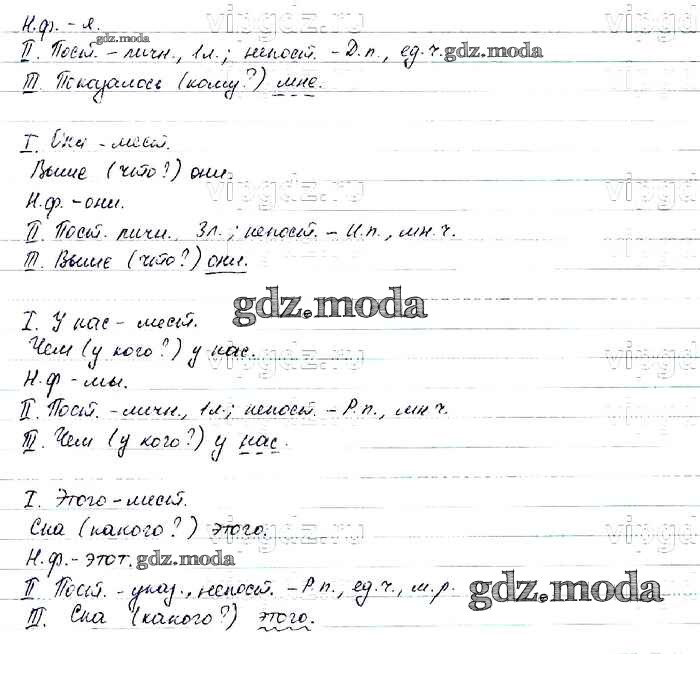 Н.ф. - я.
II. Пост. - личн., 1л.; непост. - Д.п., ед.ч.
III. Показалось (кому?) мне.
I. Они - мест.
Выше (что?) они.
Н.ф. - они.
II. Пост. личн., 3л.; непост. - И.п., мн.ч.
III. Выше (что?) они.
I. У нас - мест.
Чем (у кого?) у нас.
Н.ф - мы.
II. Пост. - личн., 1л.; непост. - Р.п., мн.ч.
III. Чем (у кого?) у нас.
I. Этого - мест.
Сна (какого?) этого.
Н.ф. - этот.
II. Пост. - указ., непост. - Р.п., ед.ч., м.р.
III. Сна (какого?) этого.
gdz.moda
gdz.moda
gdz.moda
gdz.moda
gdz.moda
vipgdz.ru
vipgdz.ru
vipgdz.ru
vipgdz.ru
vipgd
vipgd
vipgd
vipgd